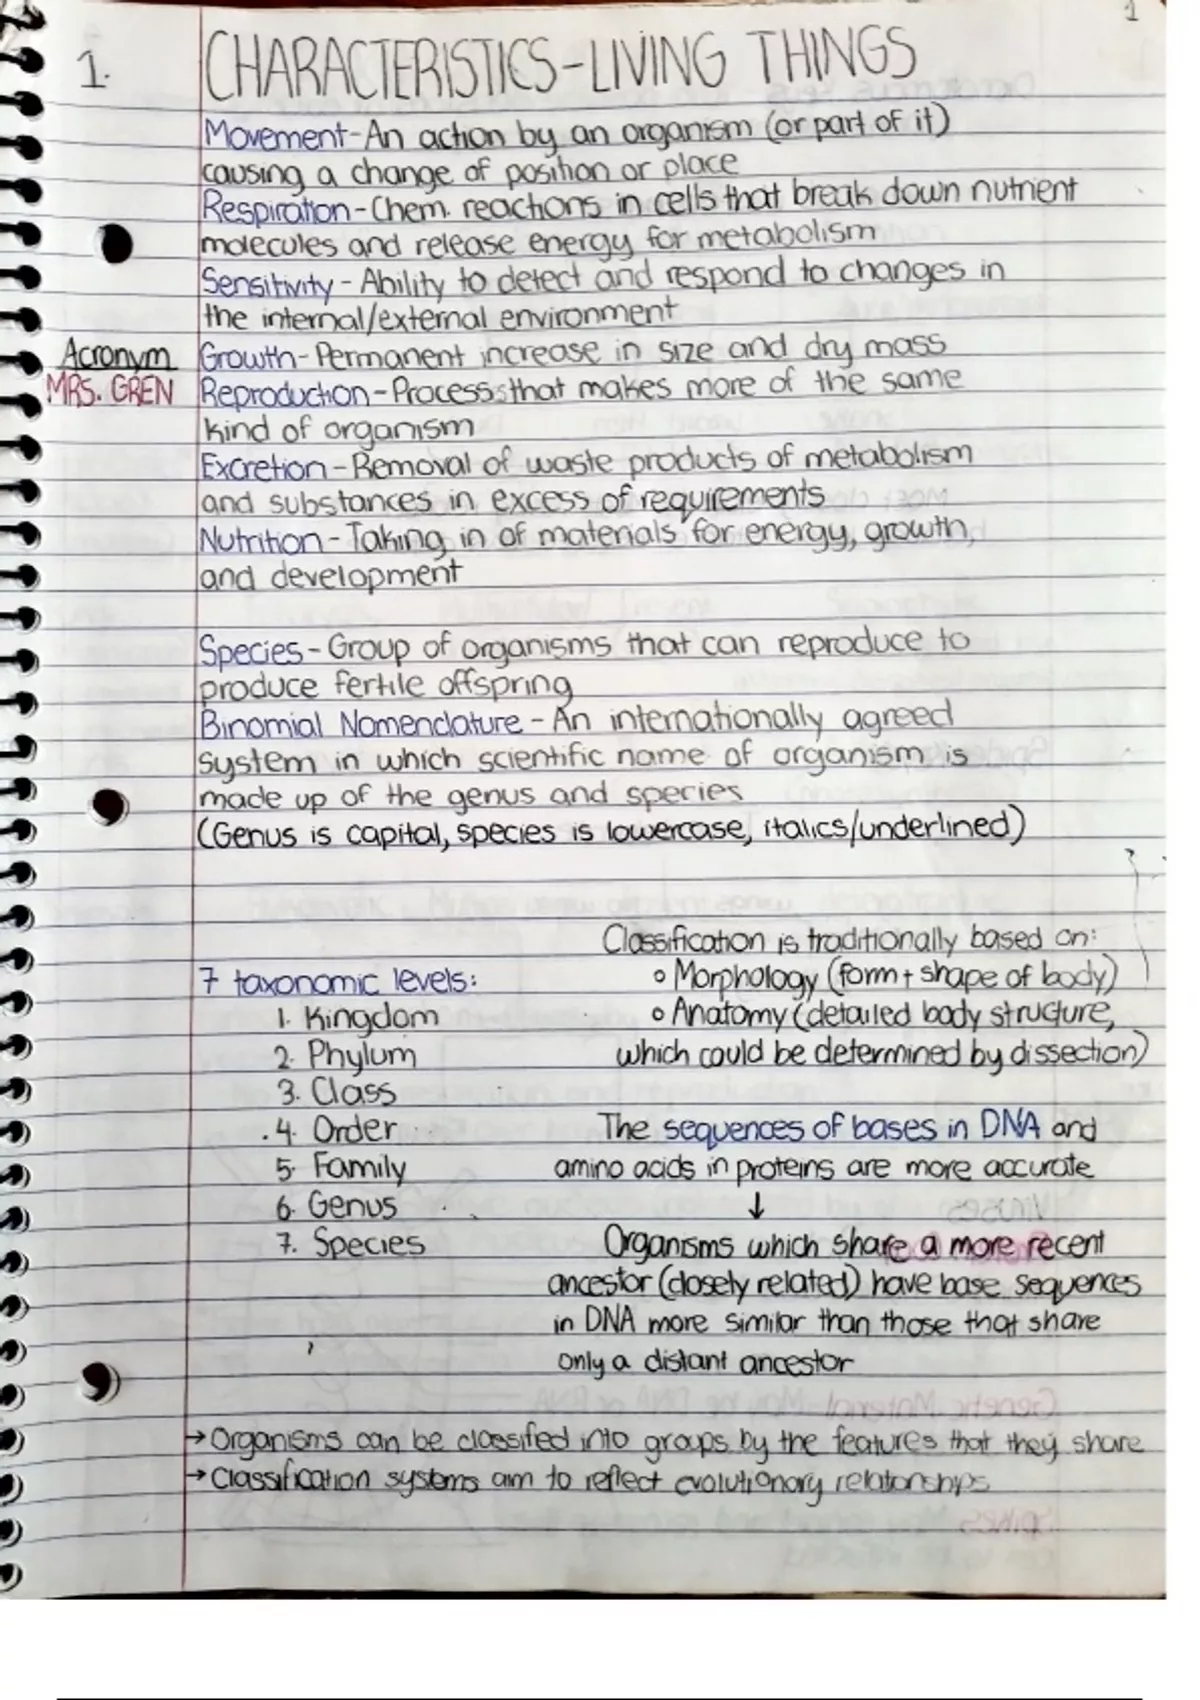 1
1. CHARACTERISTICS-LIVING THINGS
Movement-An action by an organism (or part of it)
causing a change of position or place
Respiration-Chem. reactions in cells that break down nutrient
molecules and release energy for metabolism
Sensitivity-Ability to detect and respond to changes in
the internal/external environment
Acronym Growth-Permanent increase in size and dry mass
MRS. GREN Reproduction-Processes that makes more of the same
kind of organism
Excretion-Removal of waste products of metabolism
and substances in excess of requirements
Nutrition-Taking in of materials for energy, growth,
and development
Species-Group of organisms that can reproduce to
produce fertile offspring
Binomial Nomenclature-An internationally agreed
system in which scientific name of organism is
made up of the genus and species
(Genus is capital, species is lowercase, italics/underlined)
7 taxonomic levels:
1. Kingdom
2. Phylum
3. Class
4. Order
5. Family
6. Genus
7. Species
Classification is traditionally based on:
o Morphology (form + shape of body)
o Anatomy (detailed body structure,
which could be determined by dissection)
The sequences of bases in DNA and
amino acids in proteins are more accurate
↓
Organisms which share a more recent
ancestor (closely related) have base sequences
in DNA more similar than those that share
only a distant ancestor
→ Organisms can be classified into groups by the features that they share
→ Classification systems aim to reflect evolutionary relationships